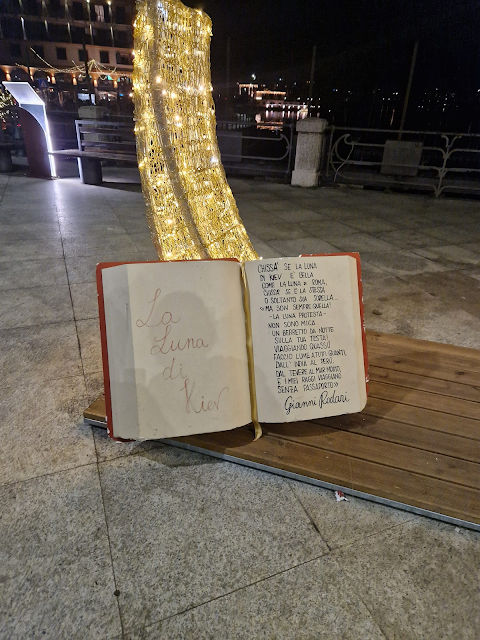 La
Luna
di
Kiev
CHISSA' SE LA LUNA
DI KIEV E' BELLA
COME LA LUNA DI ROMA,
CHISSA' SE E' LA STESSA
O SOLTANTO SUA SORELLA...
«MA SON SEMPRE QUELLA!
-LA LUNA PROTESTA-
NON SONO MICA
UN BERRETTO DA NOTTE
SULLA TUA TESTA!
VIAGGIANDO QUASSÙ
FACCIO LUME A TUTTI QUANTI,
DALL'INDIA AL PERÙ,
DAL TEVERE AL MAR MORTO,
E I MIEI RAGGI VIAGGIANO
SENZA PASSAPORTO»
Gianni Rodari